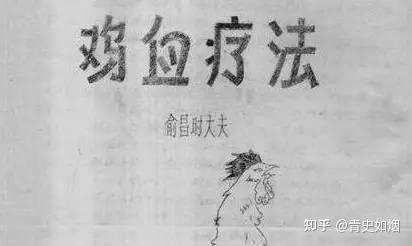 鸡血疗法
俞昌时大夫
知乎 @青史如烟